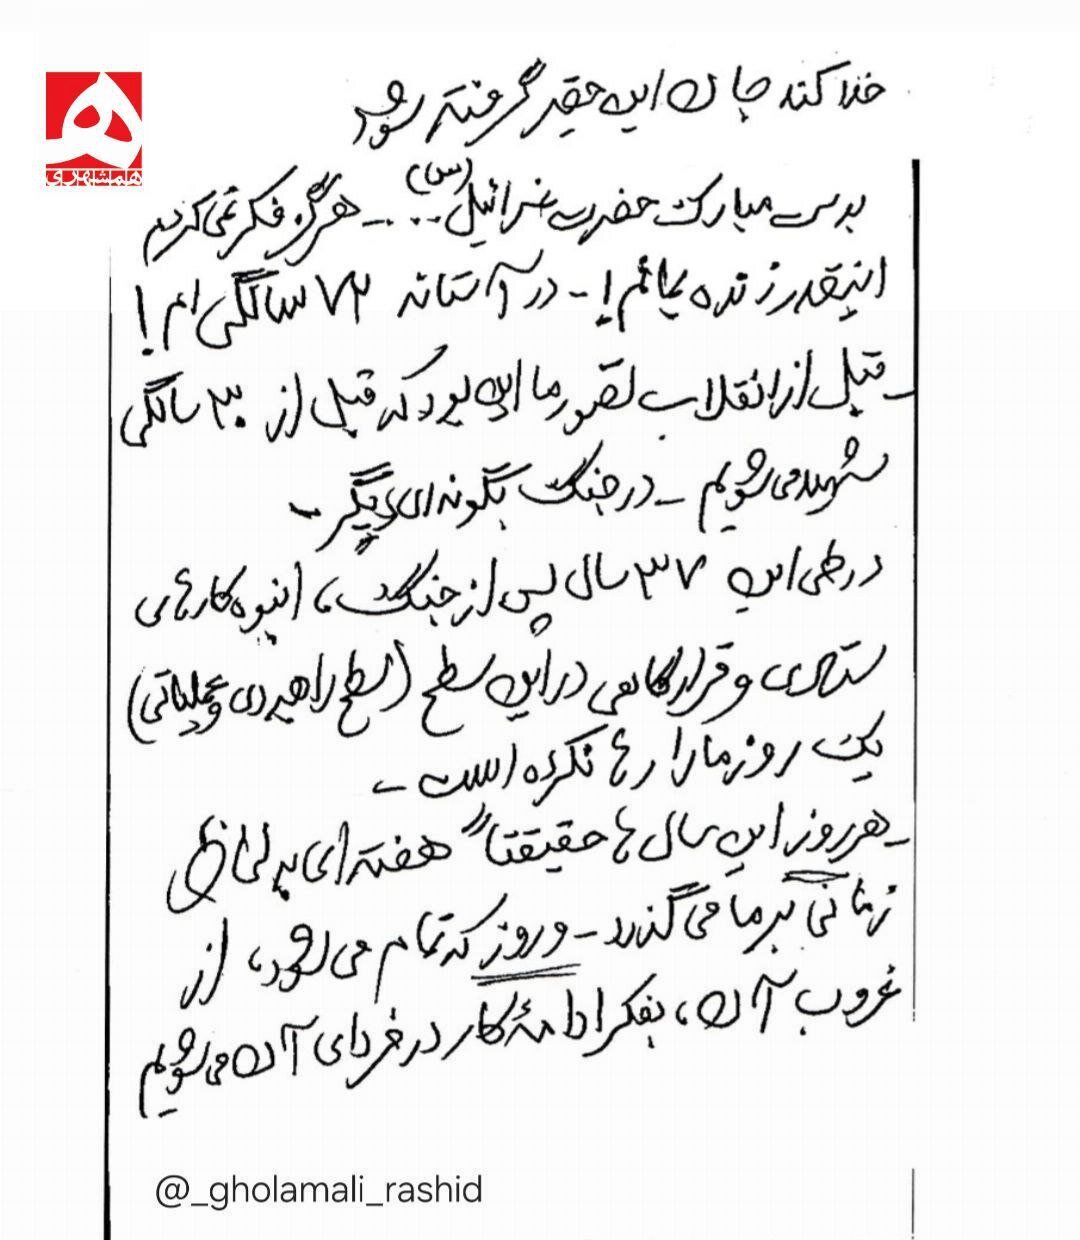 همشهری
خدا کند جان این حقیر گرفته شود
بدست مبارک حضرت عزرائیل (س)... - هرگز فکر نمی‌کردیم
اینقدر زنده بمانم! - در آستانه ۷۲ سالگی ام!
- قبل از انقلاب تصور ما این بود که قبل از ۳۰ سالگی
شهید می‌شویم - در جنگ بگونه‌ای دیگر -
در طی این ۳۷ سال پس از جنگ، انبوه کارهای
ستادی و قرارگاهی در این سطح (سطح راهبردی و عملیاتی)
یک روز ما را رها نکرده است -
- هر روز این سال ها حقیقتاً هفته‌ای به لحاظ
زمانی بر ما می‌گذرد - و روز که تمام می‌شود، از
غروب آن، بفکر ادامهٔ کار در فردای آن می‌شویم
@_gholamali_rashid